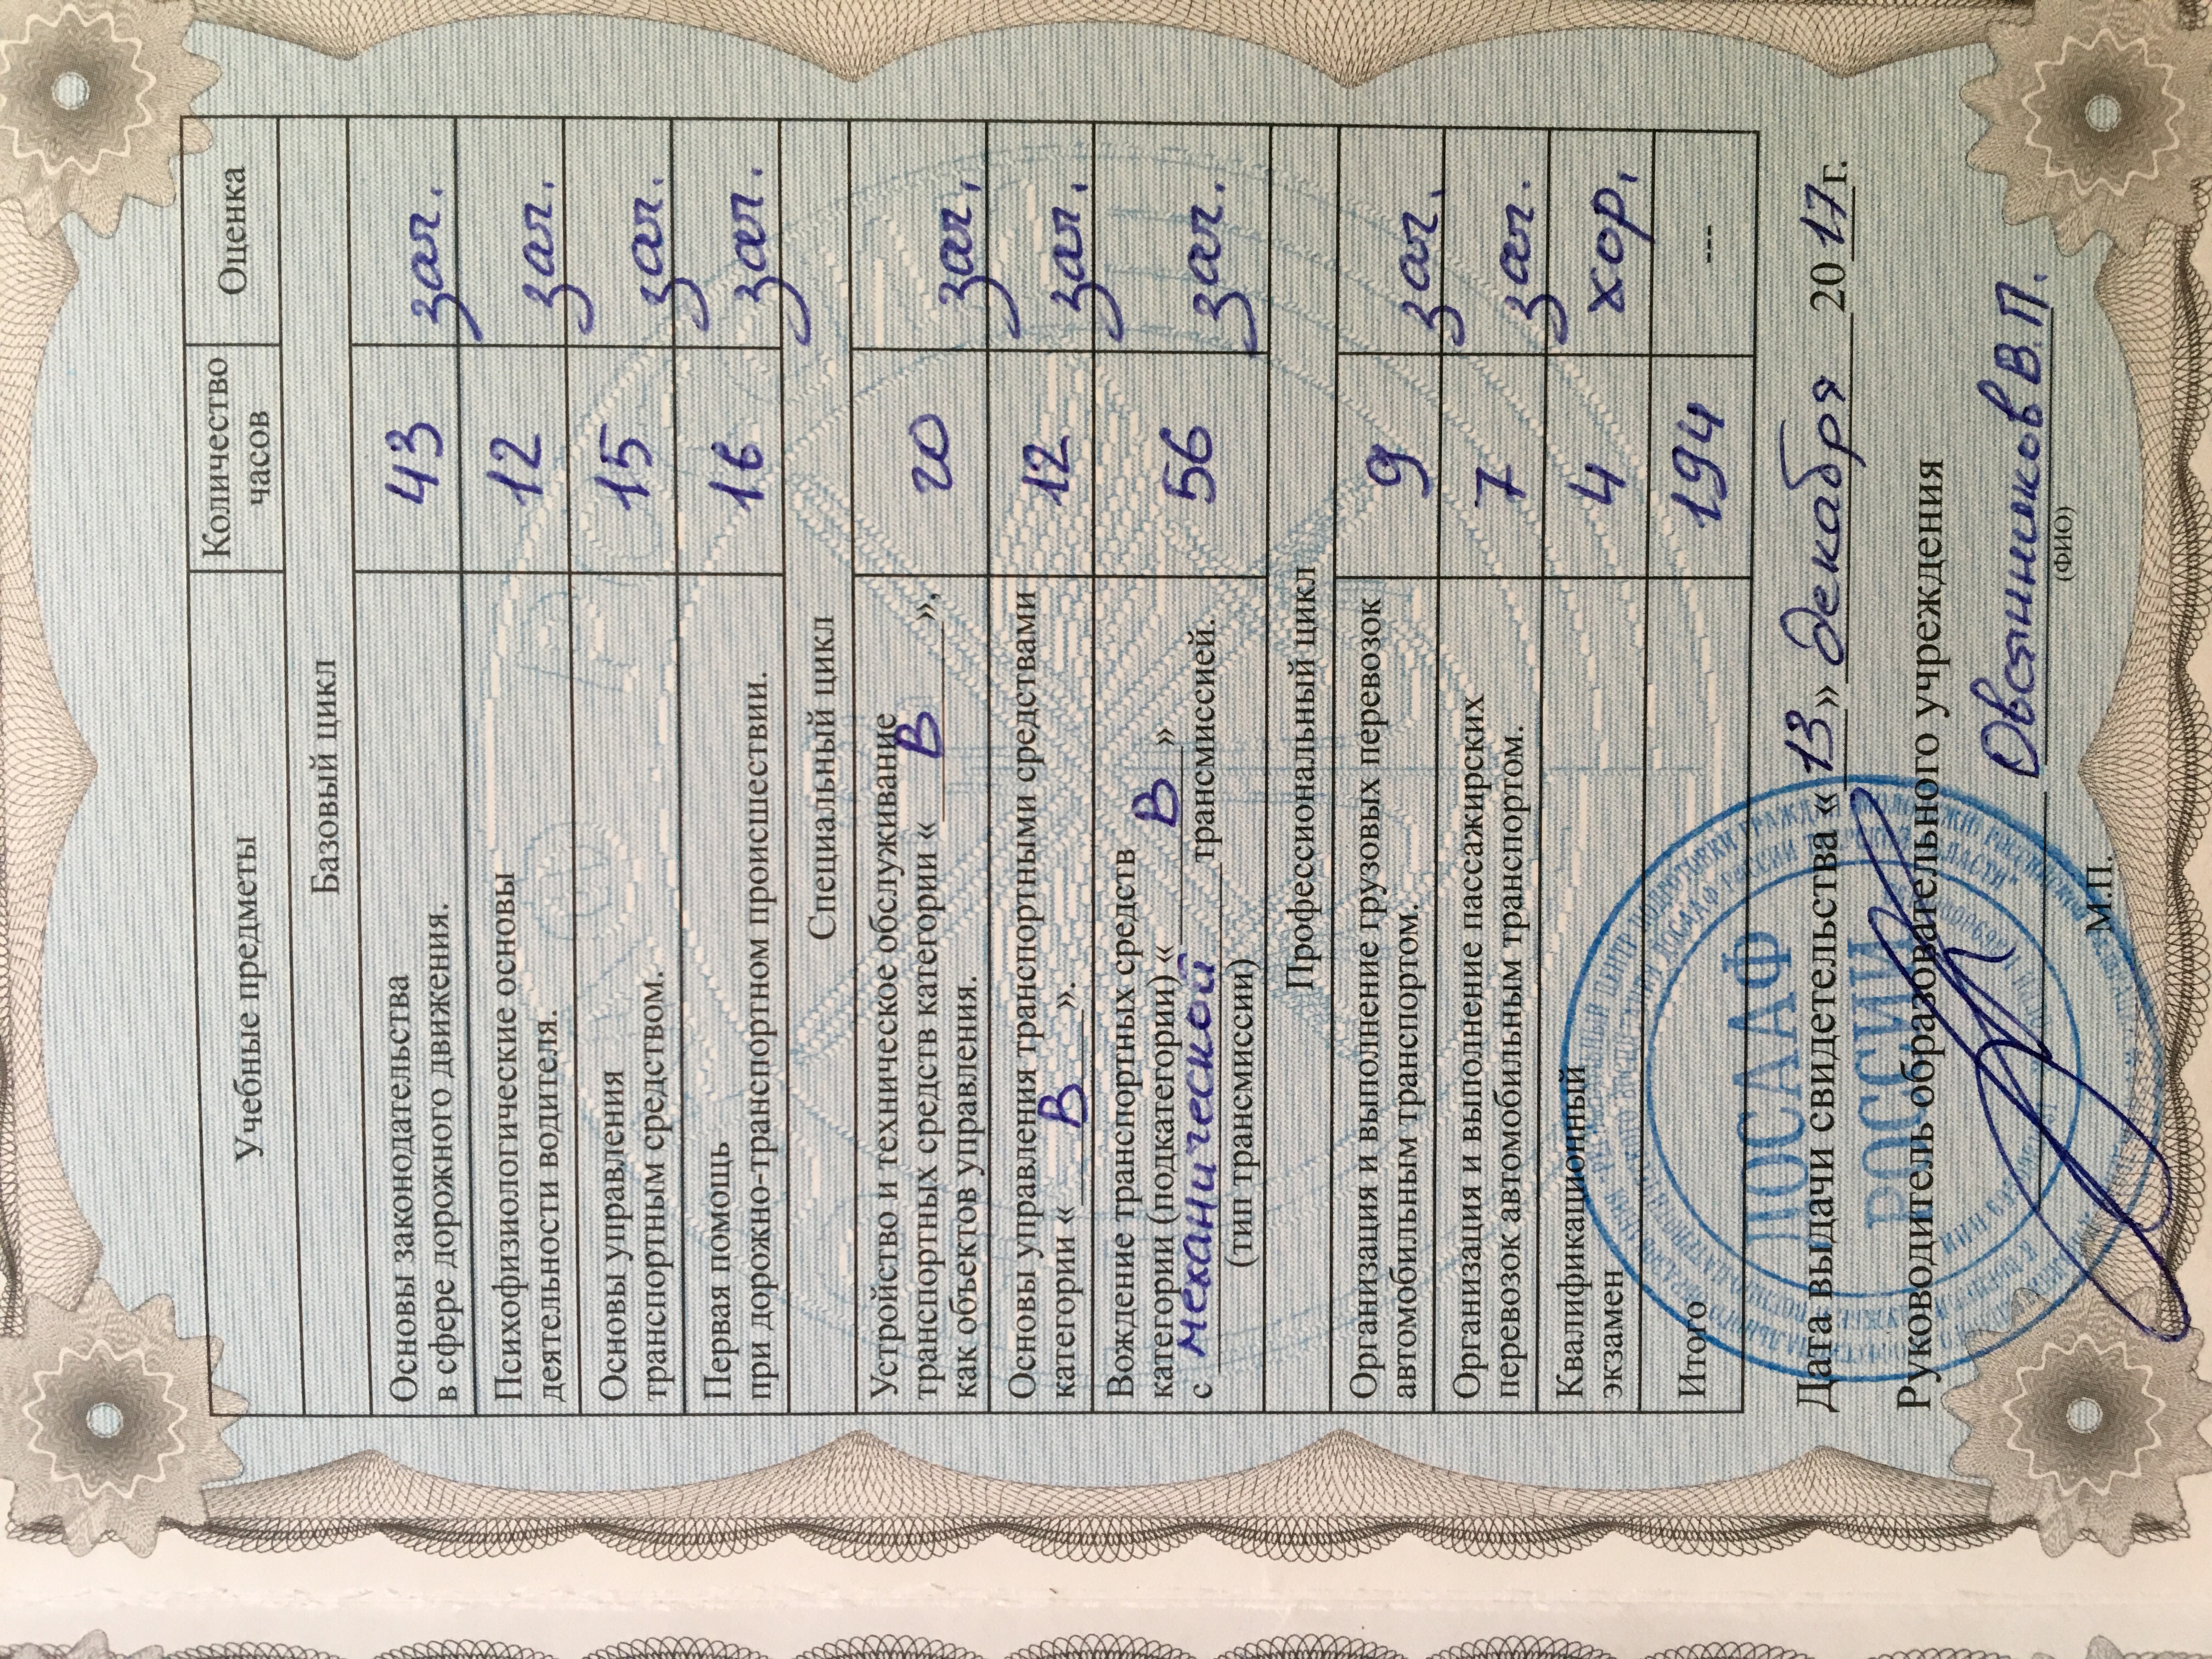 Учебные предметы Количество часов Оценка
Базовый цикл
Основы законодательства
в сфере дорожного движения. 43 зач.
Психофизиологические основы
деятельности водителя. 12 зач.
Основы управления
транспортным средством. 15 зач.
Первая помощь
при дорожно-транспортном происшествии. 16 зач.
Специальный цикл
Устройство и техническое обслуживание
транспортных средств категории « В »,
как объектов управления. 20 зач.
Основы управления транспортными средствами
категории « В ». 12 зач.
Вождение транспортных средств
категории (подкатегории) « В »
с механической трансмиссией. 56 зач.
(тип трансмиссии)
Профессиональный цикл
Организация и выполнение грузовых перевозок
автомобильным транспортом. 9 зач.
Организация и выполнение пассажирских
перевозок автомобильным транспортом. 7 зач.
Квалификационный
экзамен 4 хор.
Итого 194 ---
Дата выдачи свидетельства « 13 » декабря 2017 г.
Руководитель образовательного учреждения
Овсянников В.П.
(ФИО)
М.П.
ДОСААФ
РОССИИ